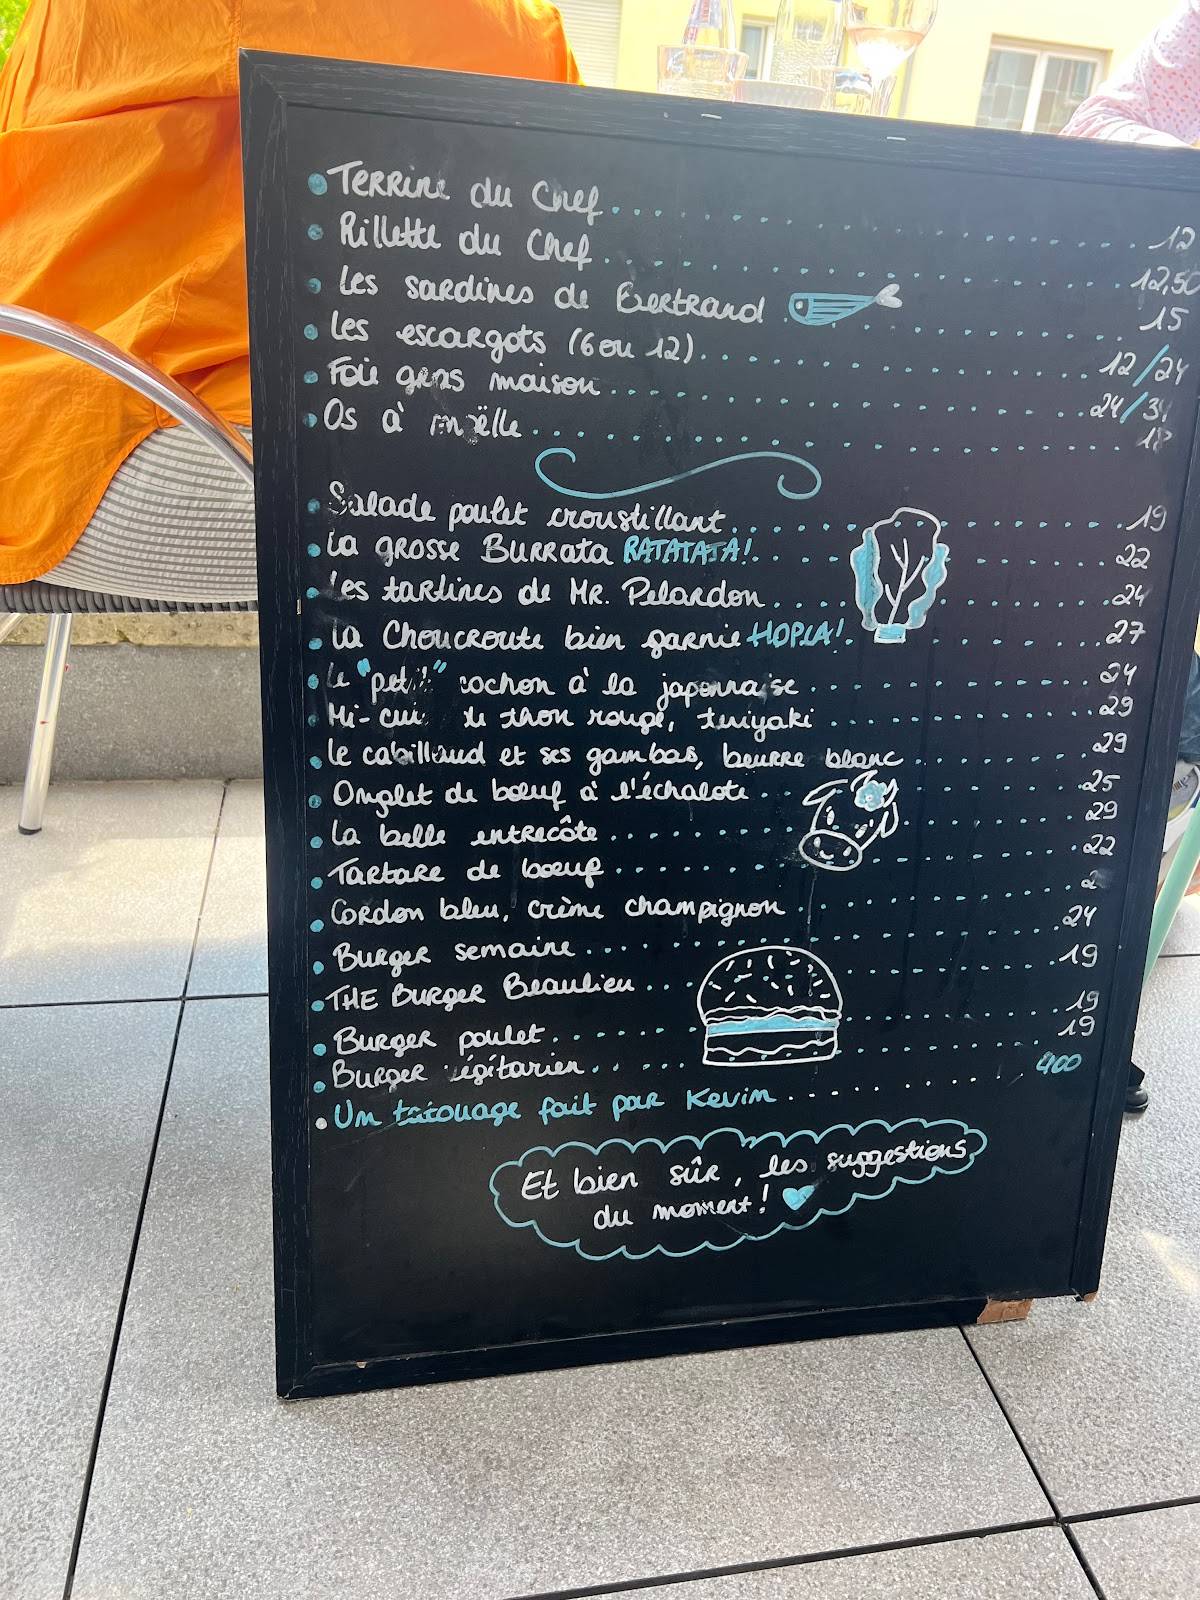 Terrine du Chef 12
Rillette du Chef 12,50
Les sardines de Bertrand 15
Les escargots (6 ou 12) 12/24
Foie gras maison 24/
Os à moëlle
Salade poulet croustillant 19
La grosse Burrata RATATATA! 22
Les tartines de MR. Pelardon 24
La Choucroute bien garnie HOPLA! 27
Le "petit" cochon à la japonnaise 24
Mi-cuit de thon rouge, teriyaki 29
Le cabillaud et ses gambas, beurre blanc 29
Onglet de bœuf à l'échalote 25
La belle entrecôte 29
Tartare de boeuf 22
Cordon bleu, crème champignon
Burger semaine 24
THE Burger Beaulieu 19
Burger poulet 19
Burger végétarien 19
Un tatouage fait par Kevin 400
Et bien sûr, les suggestions
du moment!